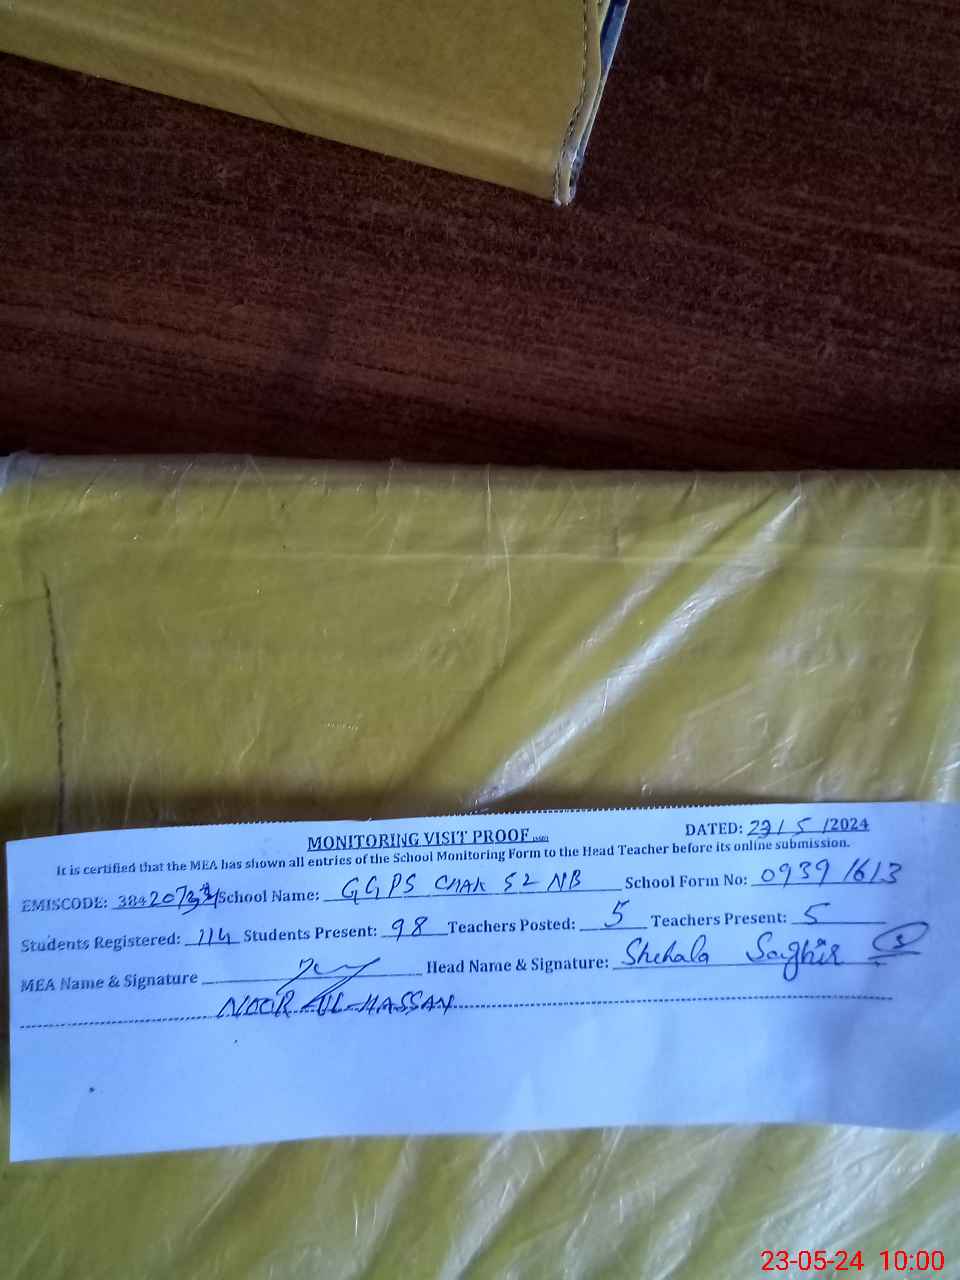 MONITORING VISIT PROOF
DATED: 23/5/2024
It is certified that the MEA has shown all entries of the School Monitoring Form to the Head Teacher before its online submission.
EMISCODE: School Name: GGPS CHAK 52 NB School Form No: 09391613
Students Registered: 114 Students Present: 98 Teachers Posted: 5 Teachers Present: 5
MEA Name & Signature Head Name & Signature: Shehala Saghir
NOOR-UL-HASSAN
23-05-24 10:00